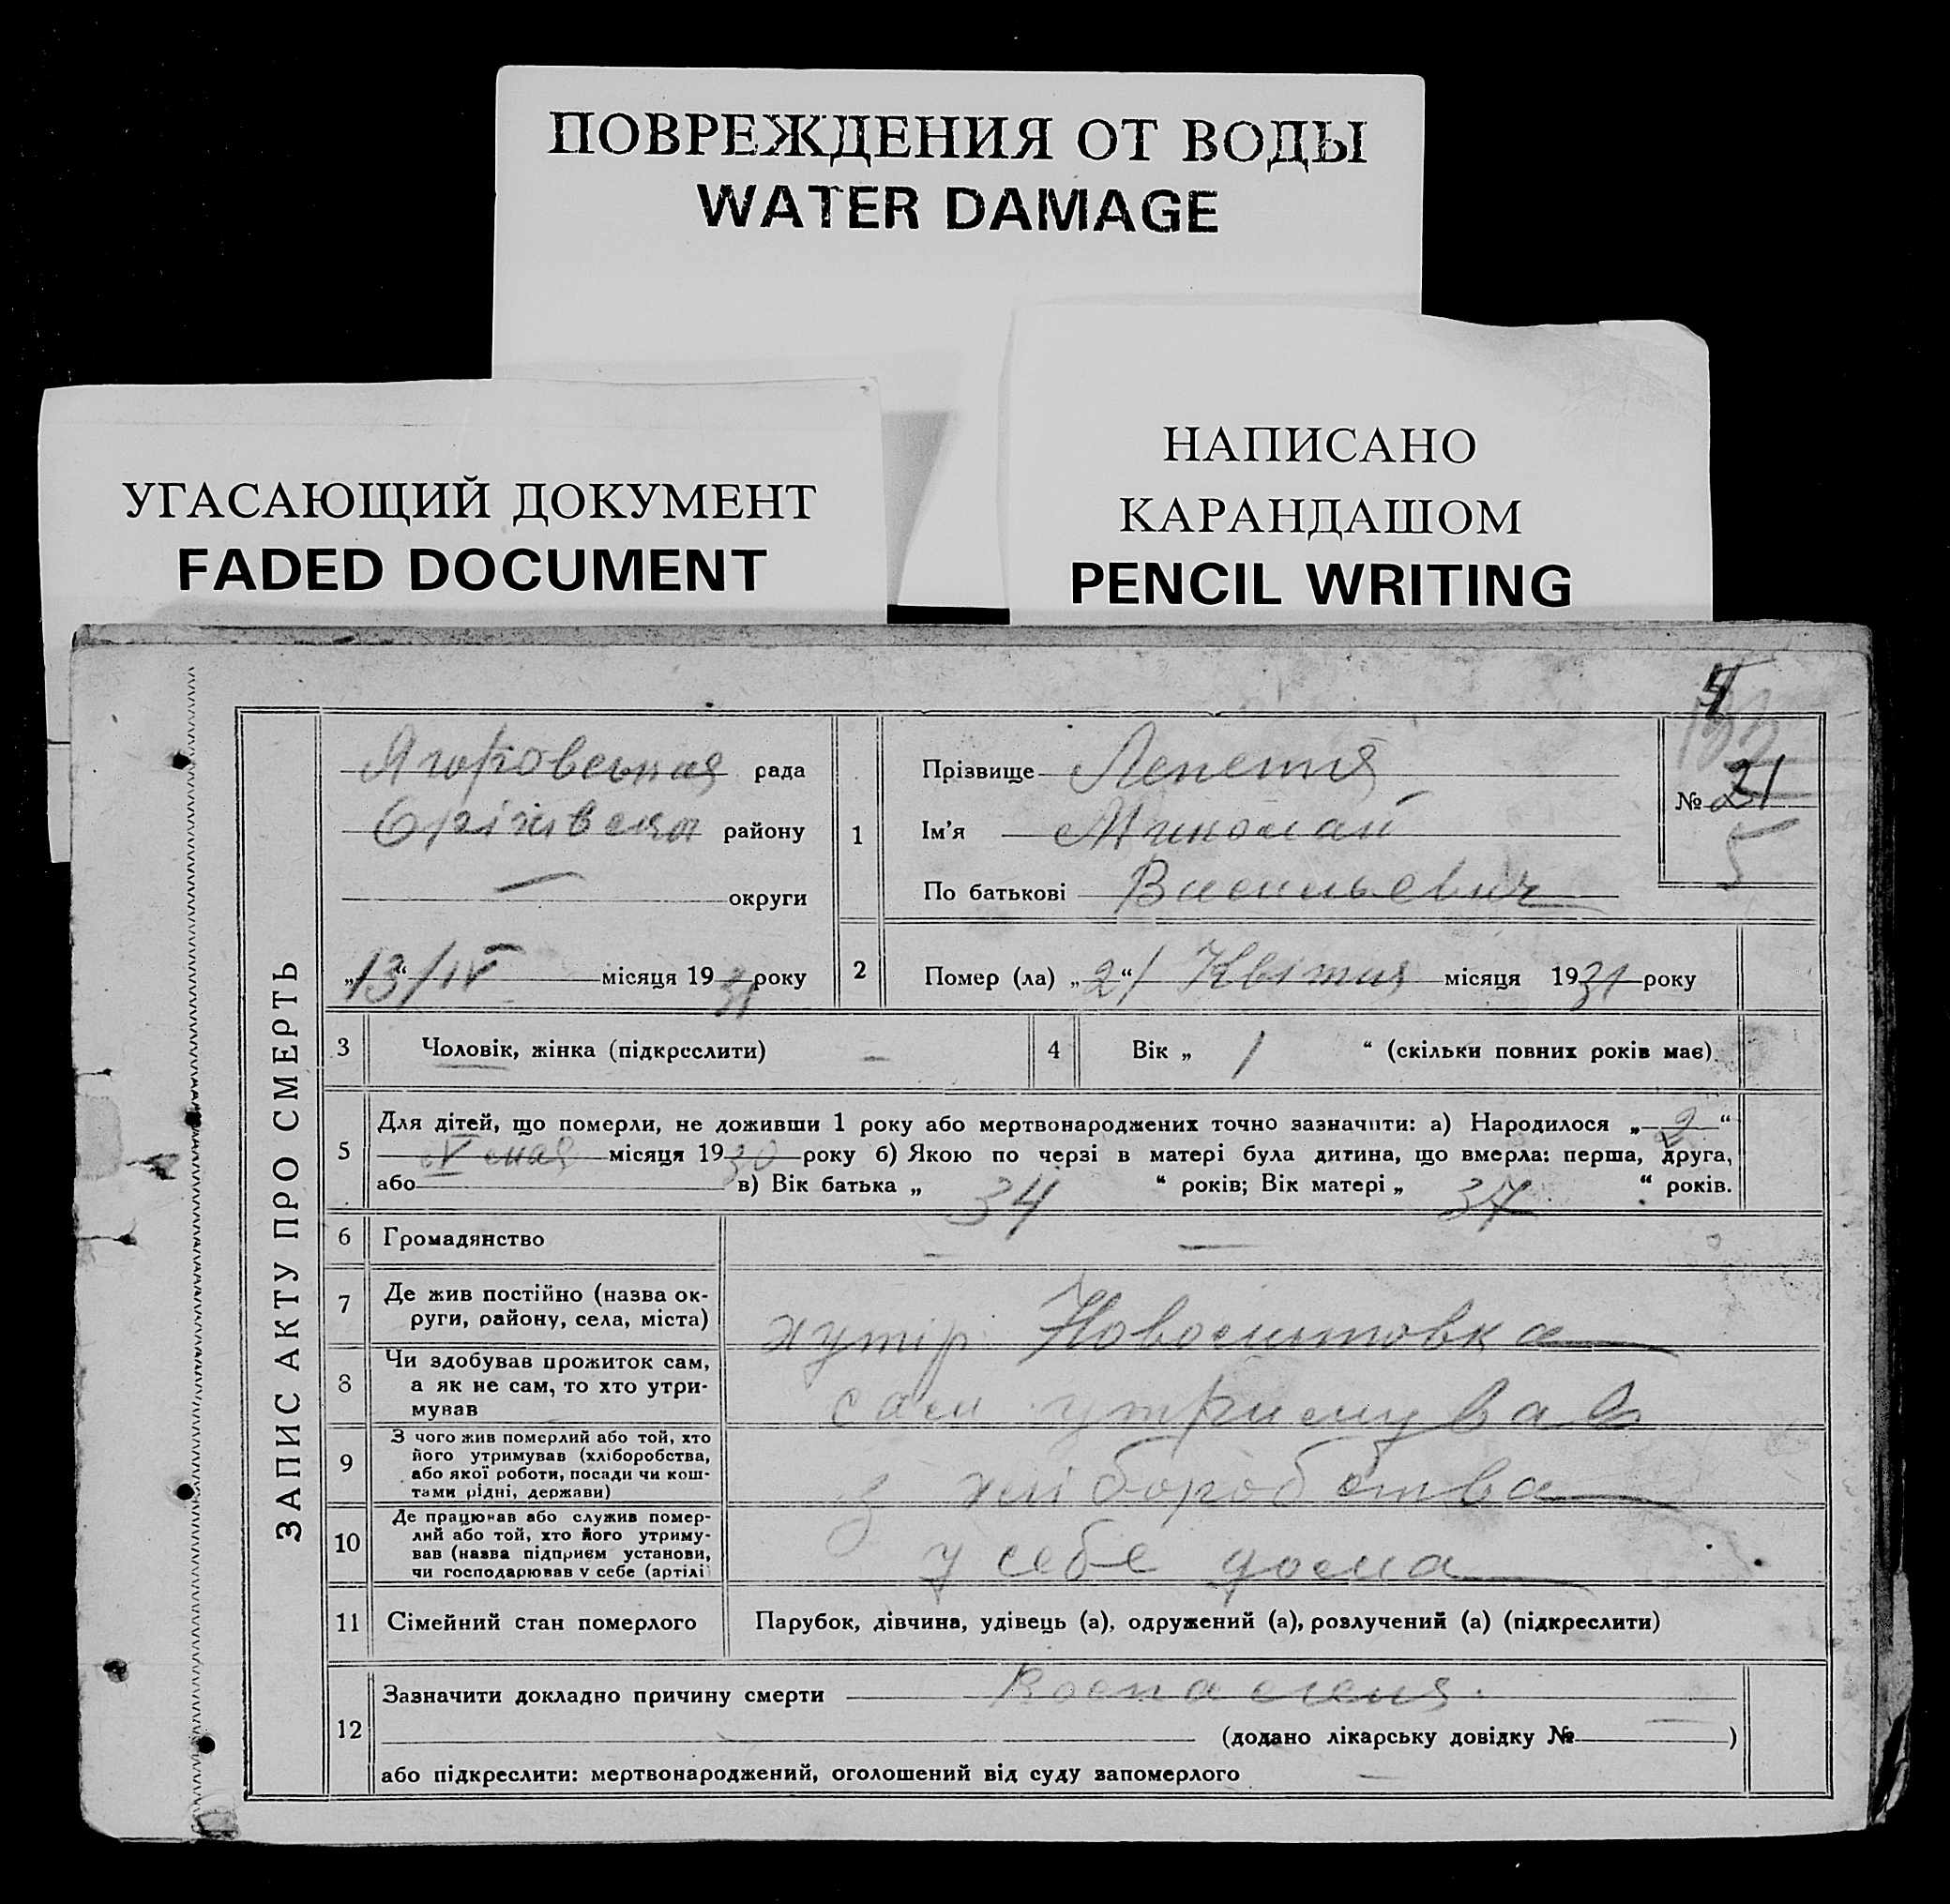 ПОВРЕЖДЕНИЯ ОТ ВОДЫ
WATER DAMAGE
УГАСАЮЩИЙ ДОКУМЕНТ
FADED DOCUMENT
НАПИСАНО
КАРАНДАШОМ
PENCIL WRITING
ЗАПИС АКТУ ПРО СМЕРТЬ
рада
району
— округи
„13/IV“ місяця 1931 року
1
Прізвище
Ім’я Миколай
По батькові Васильевич
№ 21
5
2
Помер (ла) „2“/ Квітня місяця 1931 року
3
Чоловік, жінка (підкреслити) —
4
Вік „ 1 “ (скільки повних років має).
5
Для дітей, що померли, не доживши 1 року або мертвонароджених точно зазначити: а) Народилося „2“
V мая місяця 1930 року б) Якою по черзі в матері була дитина, що вмерла: перша, друга,
або в) Вік батька „ 34 “ років; Вік матері „ 37 “ років.
6
Громадянство —
7
Де жив постійно (назва ок-
руги, району, села, міста)
хутір
8
Чи здобував прожиток сам,
а як не сам, то хто утри-
мував
сам утримував
9
З чого жив померлий або той, хто
його утримував (хліборобства,
або якої роботи, посади чи кош-
тами рідні, держави)
з хліборобства
10
Де працював або служив помер-
лий або той, хто його утриму-
вав (назва підприєм установи,
чи господарював у себе (артілі
у себе дома
11
Сімейний стан померлого
Парубок, дівчина, удівець (а), одружений (а), розлучений (а) (підкреслити)
12
Зазначити докладно причину смерти
(додано лікарську довідку № —)
або підкреслити: мертвонароджений, оголошений від суду запомерлого —